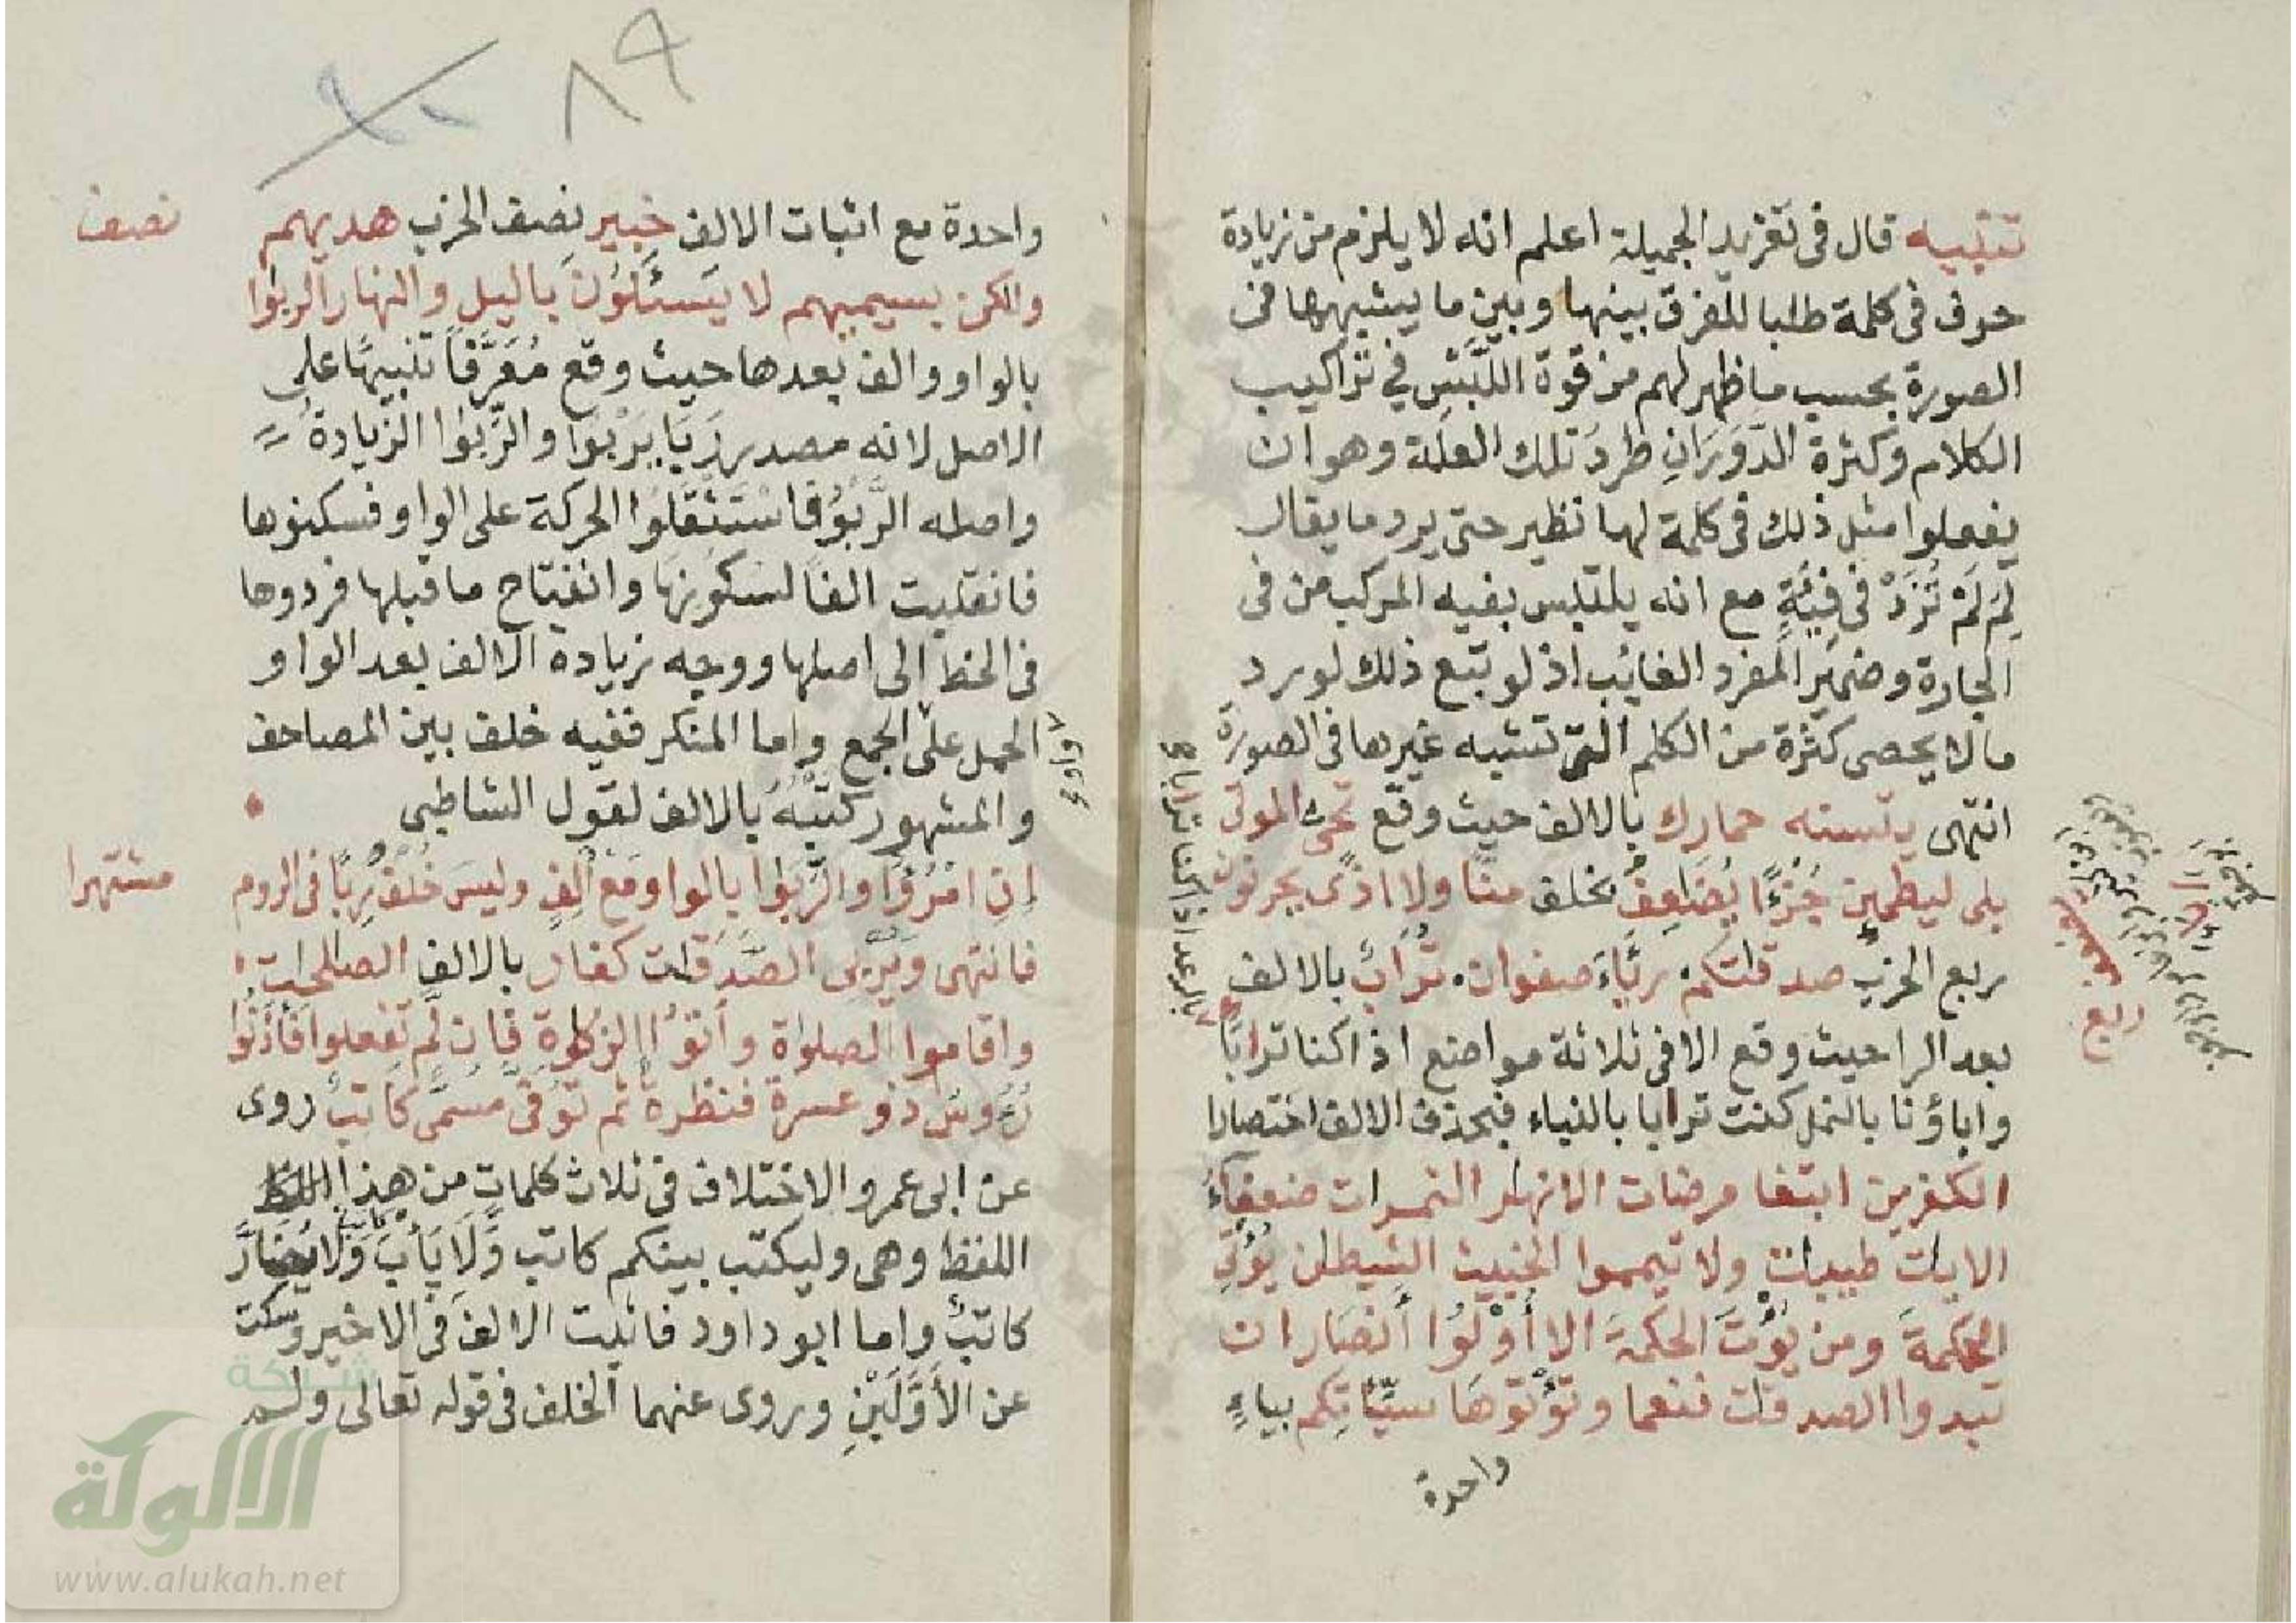 تنبيه قال في تفريد الجميلة اعلم انه لا يلزم من زيادة
حرف في كلمة طلبا للفرق بينها وبين ما يشبهها في
الصورة بحسب ما ظهر لهم من قوة اللَّبْسِ في تراكيب
الكلام وكثرة الدَّوَرَانِ طردُ تلك العلة وهو ان
يفعلوا مثل ذلك في كلمة لها نظير حتى يرد ما يقال
لِمَ لَمْ تُزَدْ في فِئَةٍ مع انه يلتبس بفيه المركب من في
الجارة وضمير المفرد الغائب اذ لو تتبع ذلك لورد
ما لا يحصى كثرة من الكلم التي تشبه غيرها في الصورة
انتهى يتسنه حمارك بالالف حيث وقع تحي الموتى
بلى ليطمين جُزْءًا يُضَٰعِفُ بخلف منًّا ولا اذًى يحزنون
ربع الحزب صدقٰتكم رئَاءَ صفوان تُرابٌ بالالف
بعد الرا حيث وقع الا في ثلاثة مواضع اذا كنا ترابًا
واباؤنا بالنمل كنت ترابا بالنباء فبحذف الالف اختصارا
الكفرين ابتغا مرضات الانهٰر الثمرات ضعفاءُ
الايٰت طيبٰت ولا تيمموا الخبيث الشيطٰن يُؤْتِي
الحكمةَ ومن يُؤْتَ الحكمةَ الا أُوْلُوا أَنصَار ان
تبدوا الصدقٰت فنعما وتؤتوها سيِّئَاتِكم بياءٍ
واحدة
ربع
واحدة مع اثبات الالف خبير نصف الحزب هديهم
ولكن بسيميهم لا يَسـَٔلُونَ باليل والنهار الربوا
بالواو والف بعدها حيث وقع مُعَرَّفًا تنبيهًا على
الاصل لانه مصدر رَبَا يَرْبُوا والرِّبٰوا الزيادةُ
واصله الرَّبَوُ فاسْتَثْقَلُوا الحركة على الواو فسكنوها
فانقلبت الفًا لسكونها وانفتاح ما قبلها فردوها
في الخط إلى اصلها ووجه زيادة الالف بعد الواو
الحمل على الجمع واما المنكر ففيه خلف بين المصاحف
والمشهور كَتْبُهُ بالالف لقول الشاطبي
إنِ امْرُؤٌا والرِّبَوٰا بالواو مَعْ أَلِفٍ وليسَ خُلْفُ رِبًا في الروم
مشتهرا
فانتهى وَيُرْبِي الصَّدَقٰت كفار بالالف الصالحٰت
واقاموا الصلوٰة وأتَوُا الزكوٰة فإن لَّم تفعلوا فأذَنُوا
رُءُوسُ ذو عسرة فنظرةٌ ثم تُوَفَّى مسمًّى كاتبٌ روى
عن ابى عمرو الاختلاف في ثلاث كلماتٍ من هذا
اللفظ وهى وليكتب بينكم كاتب وَّلَا يَأْبَ كاتب وَلَا يُضَارَّ
كاتبٌ واما ابو داود فاثبت الالف في الاخير وسكت
عن الأَوَّلَيْنِ وروى عنهما الخلف في قوله تعالى ولم
نصف
٨٩
شبكة
الألوكة
www.alukah.net